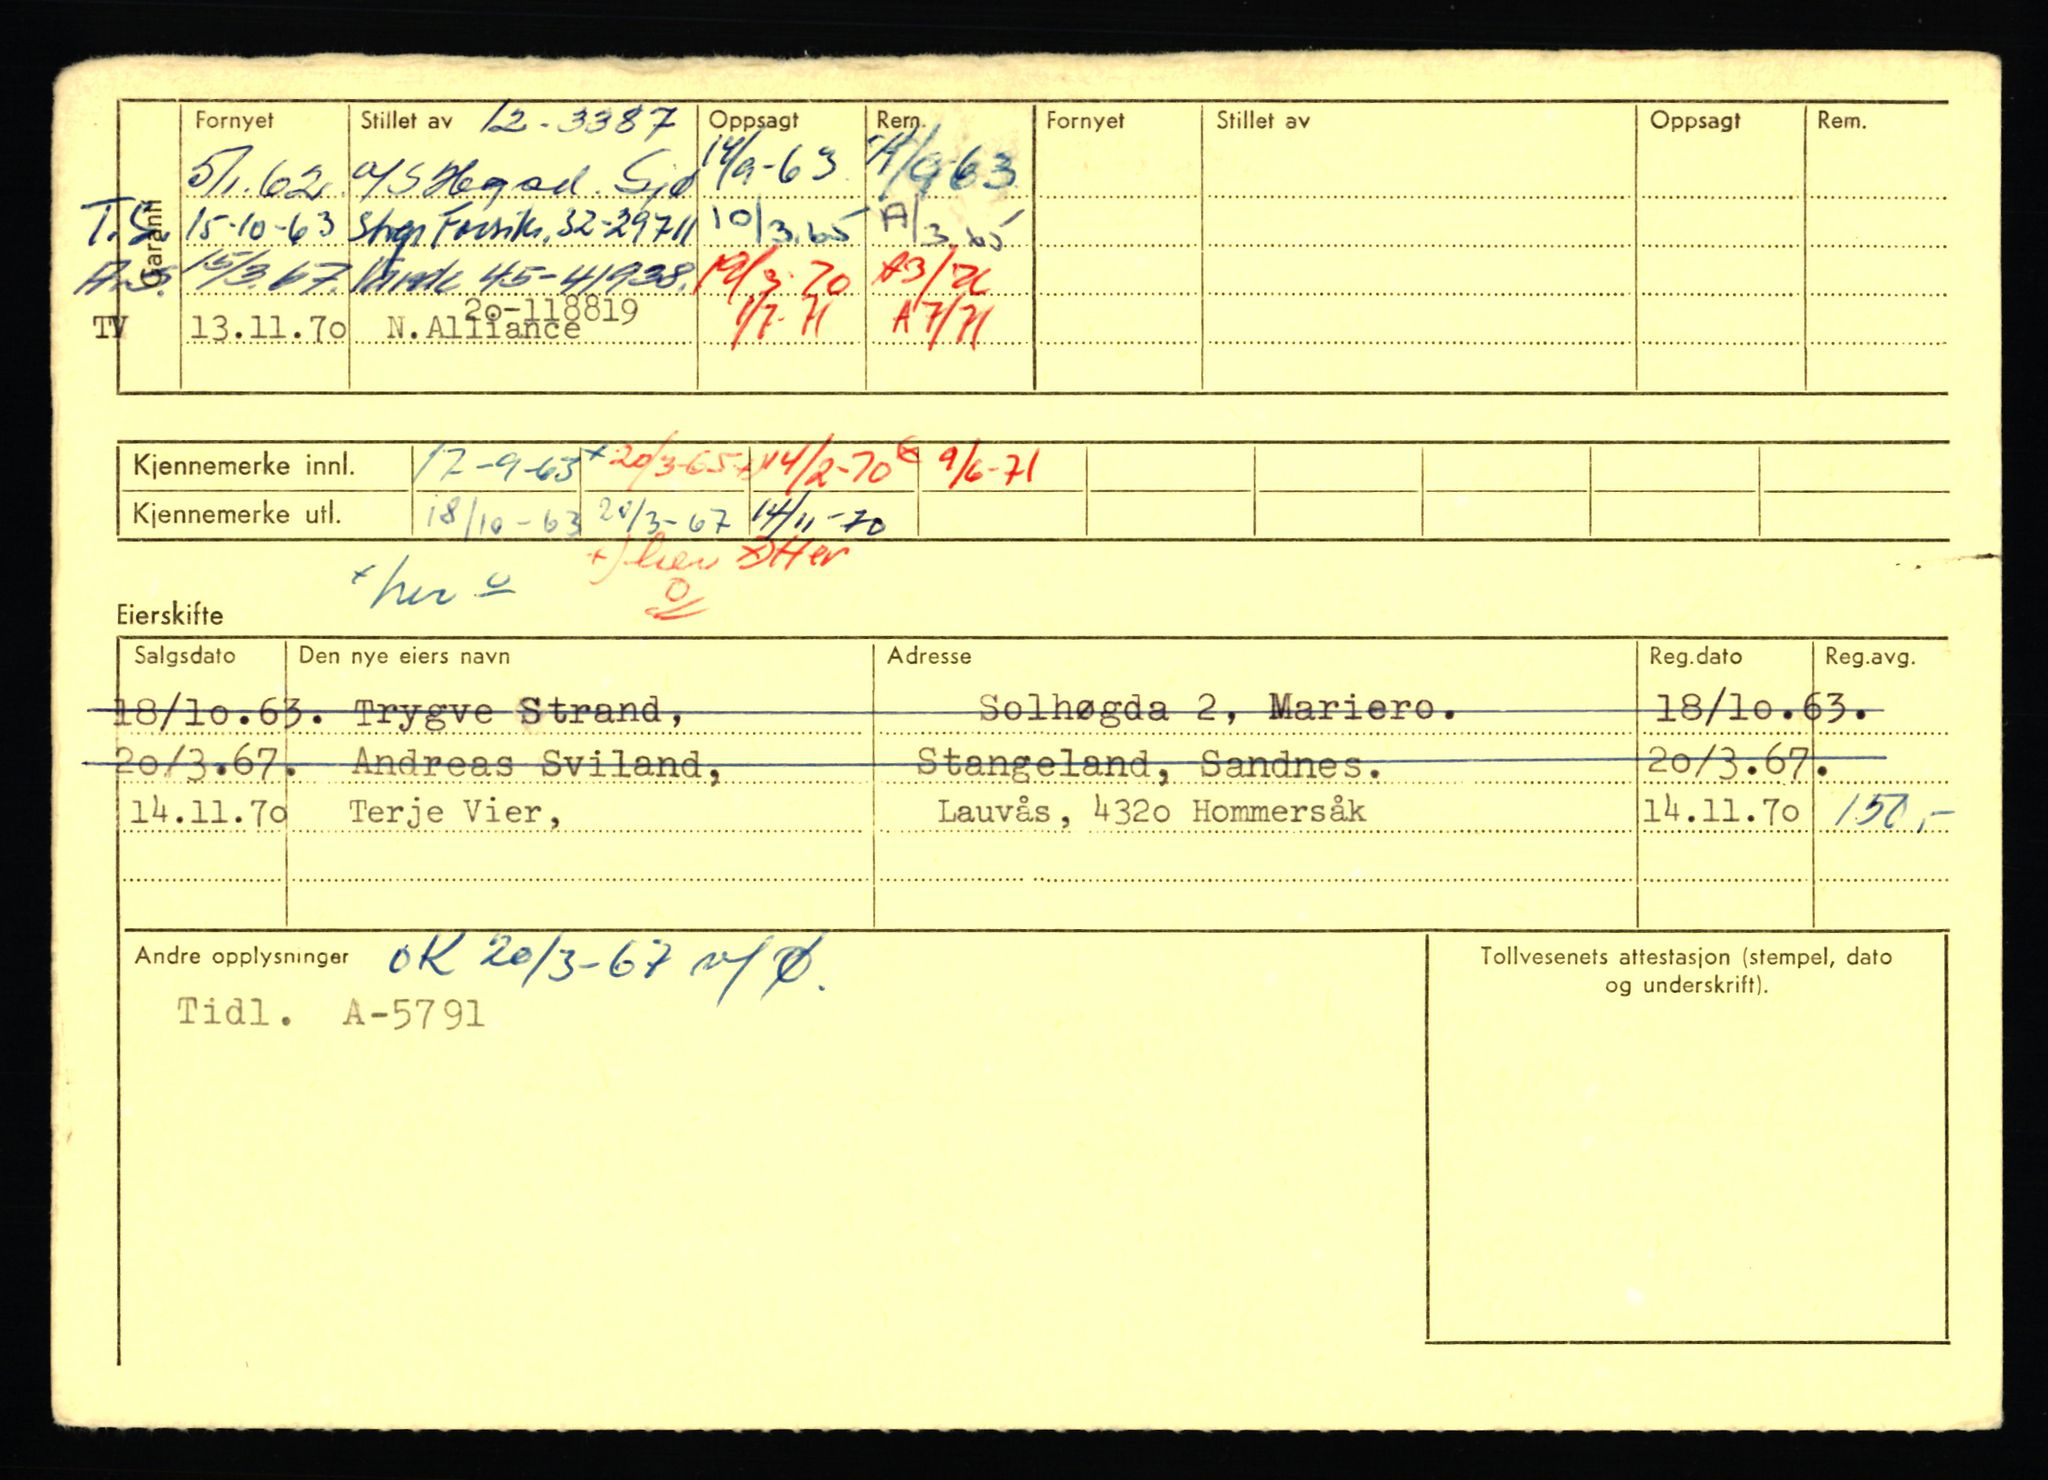 Garanti Fornyet Stillet av 12-3387 Oppsagt Rem. Fornyet Stillet av Oppsagt Rem.
5/1.62. A/S Hegad. Sjø 14/9-63 A/9-63
T.S. 15-10-63 Forsik. 32-29711 10/3.65 A/3.65
A.S. 15/3.67. 45-41938. 19/3-70 A3/70
20-118819
TV 13.11.70 N.Alliance 1/7-71 A 7/71
Kjennemerke innl. 17-9-63 + 20/3-65 +) 14/2-70 9/6-71
Kjennemerke utl. 18/10-63 20/3-67 14/11-70
+) her +) Her
+ her o
Eierskifte
Salgsdato Den nye eiers navn Adresse Reg.dato Reg.avg.
18/10.63. Trygve Strand, Solhøgda 2, Mariero. 18/10.63.
20/3.67. Andreas Sviland, Stangeland, Sandnes. 20/3.67.
14.11.70 Terje Vier, Lauvås, 4320 Hommersåk 14.11.70 150,-
Andre opplysninger OK 20/3-67 Ø.
Tidl. A-5791
Tollvesenets attestasjon (stempel, dato
og underskrift).